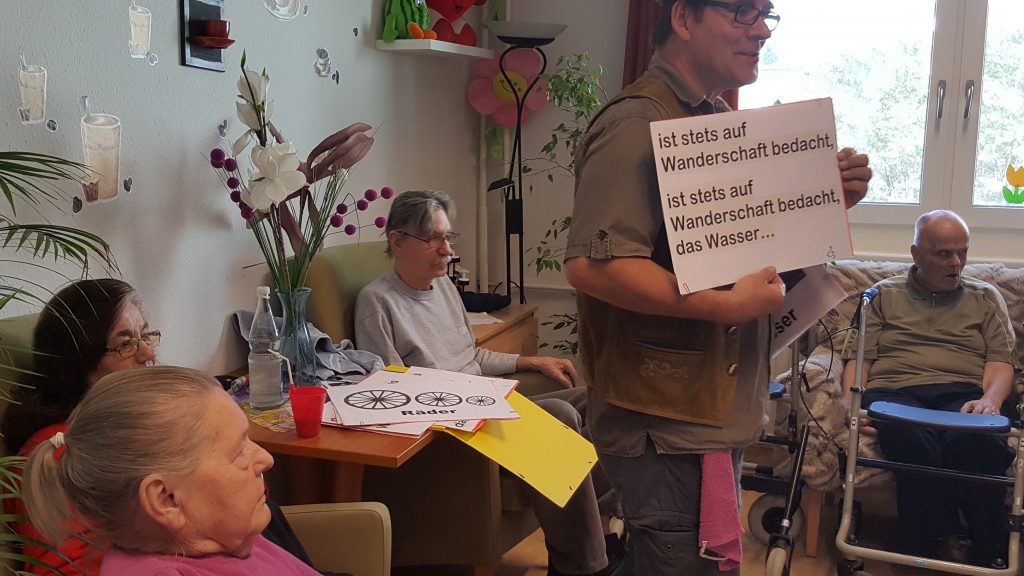 ist stets auf
Wanderschaft bedacht,
ist stets auf
Wanderschaft bedacht,
das Wasser...
Räder